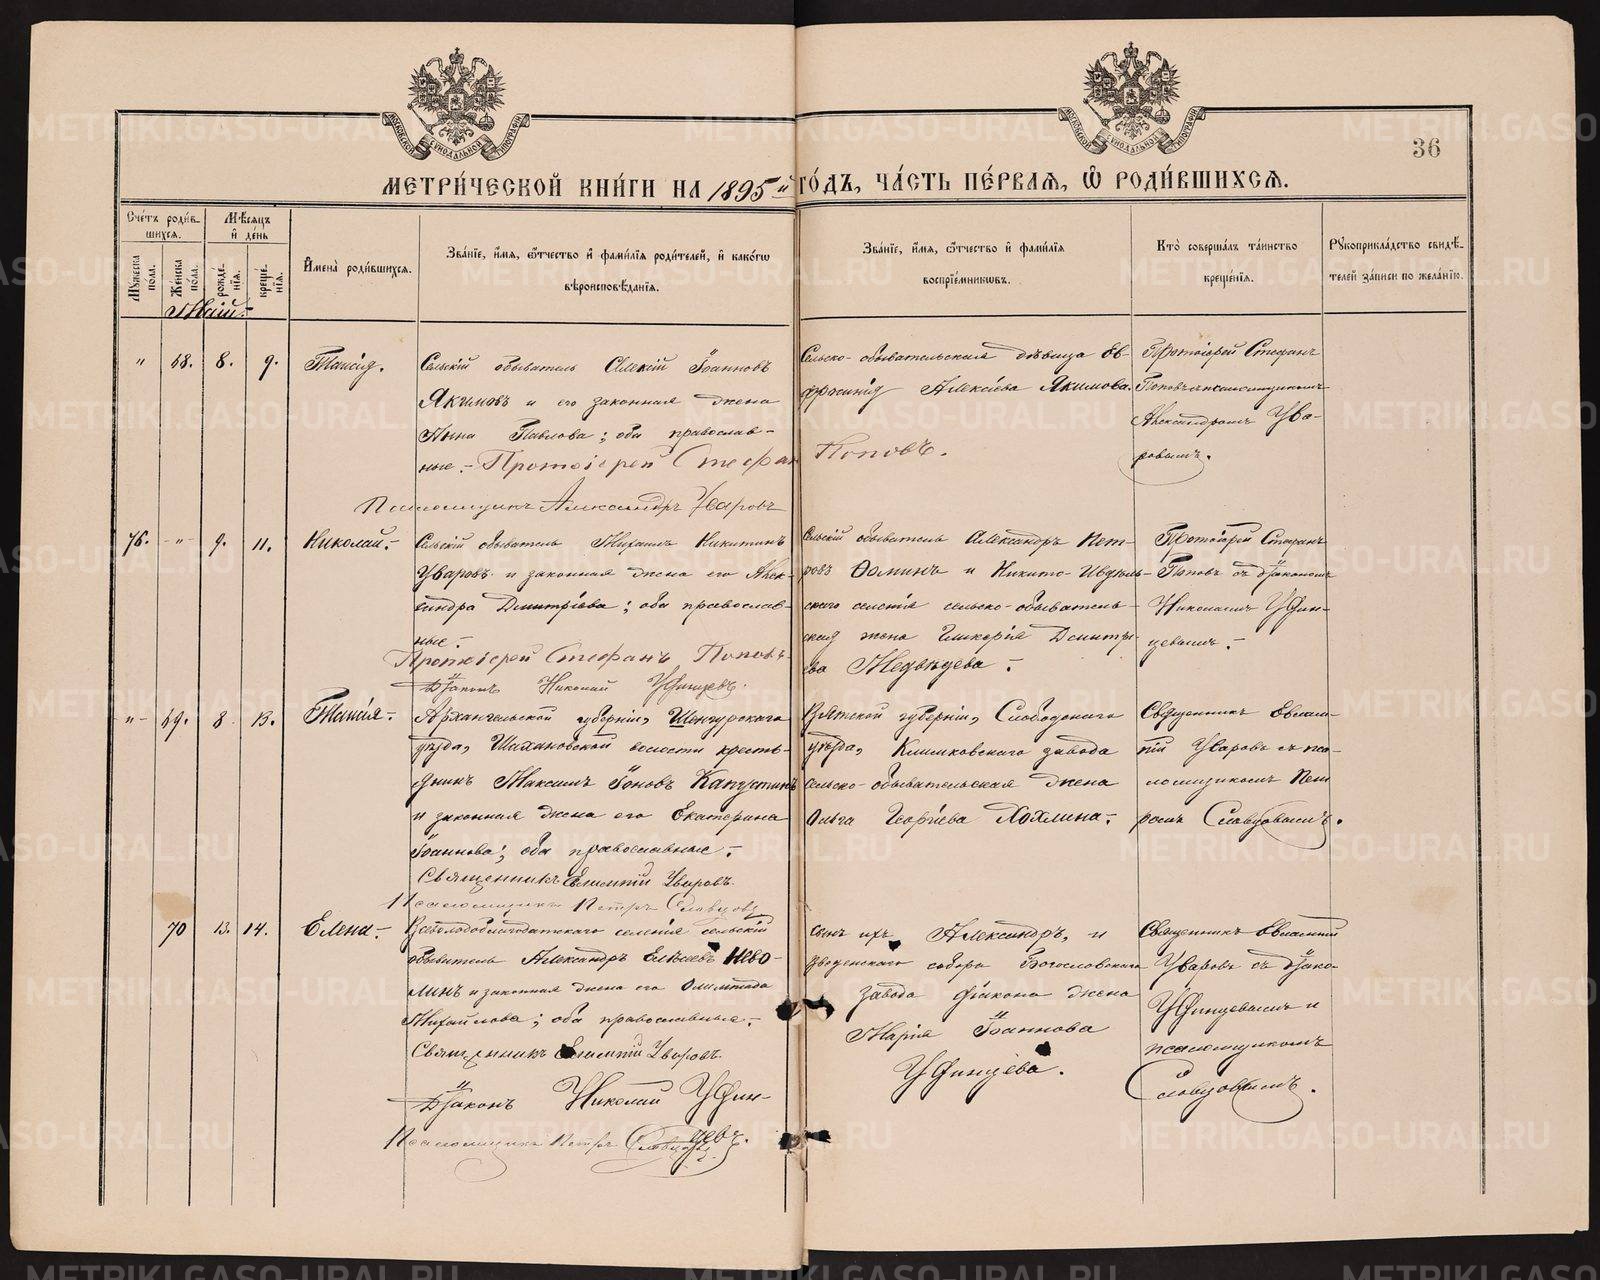 36
МЕТРИ́ЧЕСКОЙ КНИ́ГИ НА 1895 й ГО́ДЪ, ЧА́СТЬ ПЕ́РВАЯ, Ѿ РОДИ́ВШИХСЯ.
Сче́тъ роди́в-
шихся.
Мужеска пола.
Женска пола.
Мѣсяцъ
и́ де́нь
рожде-
нія.
креще-
нія.
И́мена̀ роди́вшихся.
Зва́ніе, и́мя, ѻ҆́тчество и҆ фами́лія роди́телей, и҆ како́гѡ
вѣроисповѣ́данія.
Зва́ніе, и́мя, ѻ҆́тчество и҆ фами́лія
воспріе́мниковъ.
Кто̀ соверша́лъ та́инство
креще́нія.
Рукоприкла́дство свидѣ́-
телей за́писи по жела́нію.
Май.
" 68. 8. 9. Таисія.
Сельскій обыватель Алексій Іоанновъ
Якимовъ и его законная жена
Анна Павлова; оба православ-
ные.- Протоіерей Стефан Поповъ.
Псаломщикъ Александръ Уваровъ
Сельско-обывательская дѣвица Ев-
фрасинія Алексіева Якимова.
Протоіерей Стефанъ
Поповъ с псаломщикомъ
Александромъ Ува-
ровымъ.
76. -"- 9. 11. Николай.-
Сельскій обыватель Михаилъ Никитинъ
Уваровъ и законная жена его Алек-
сандра Димитріева; оба православ-
ные.-
Протоіерей Стефанъ Поповъ
Діаконъ Николай Уфинцевъ.
Сельскій обыватель Александръ Пет-
ровъ Ѳоминъ и Никито-Ивдель-
скаго селенія сельско-обыватель-
ская жена Гликерія Димитрі-
ева Медвѣдева.-
Протоіерей Стефанъ
Поповъ съ діакономъ
Николаемъ Уфин-
цевымъ.-
-"- 69. 8 13. Таисія.-
Архангельской губерніи, Шенкурскаго
уѣзда, Шахановской волости кресть-
янинъ Максимъ Іоновъ Капустинъ
и законная жена его Екатерина
Іоаннова; оба православные.-
Священникъ Евлампій Уваровъ.
Псаломщикъ Петръ Словцовъ
Вятской губерніи, Слободскаго
уѣзда, Климковскаго завода
сельско-обывательская жена
Ольга Георгіева Хохлина.-
Священникъ Евлам-
пій Уваровъ съ пса-
ломщикомъ Пет-
ромъ Словцовымъ.
70 13. 14. Елена.-
Всеволодоблагодатскаго селенія сельскій
обыватель Александръ Елисеевъ Нево-
линъ и законная жена его Олимпіада
Михайлова; оба православные.-
Священникъ Евлампій Уваровъ.
Діаконъ Николай Уфин-
цевъ.
Псаломщикъ Петръ Словцовъ.
сынъ ихъ Александръ, и
Введенскаго собора Богословскаго
завода діакона жена
Марія Іоаннова
Уфинцева.
Священникъ Евлампій
Уваровъ съ діако-
Уфинцевымъ и
псаломщикомъ
Словцовымъ.
METRIKI.GASO-URAL.RU